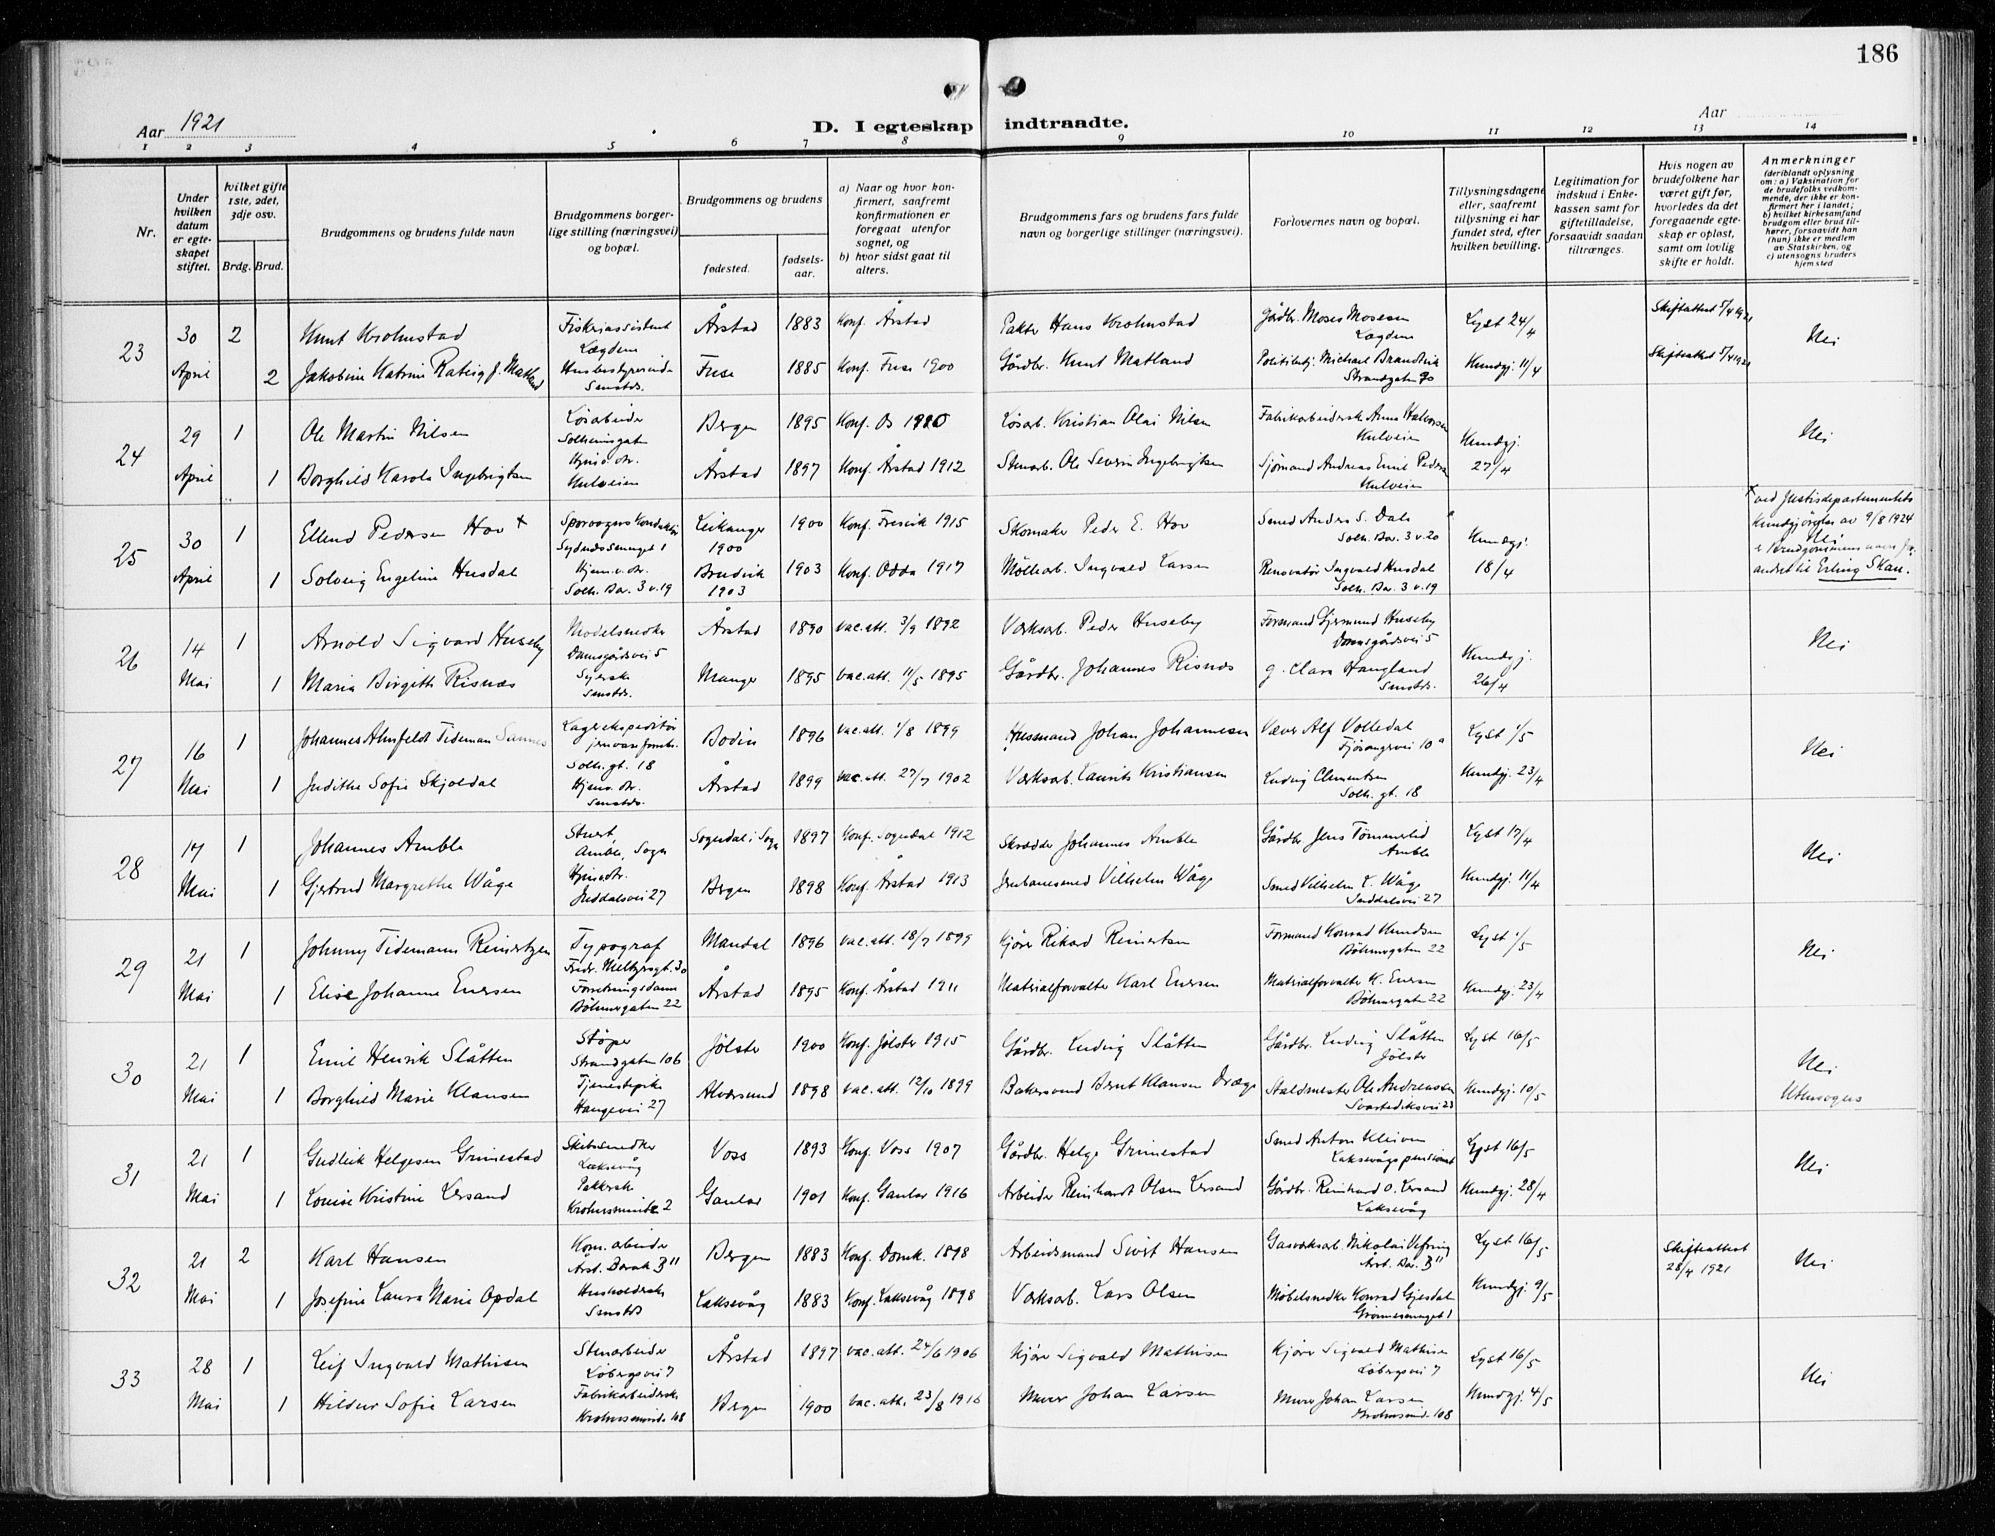 186
Aar 1921
D. I egteskap indtraadte.
Aar
1 2 3 4 5 6 7 8 9 10 11 12 13 14
Nr.
Under hvilken datum er egteskapet stiftet.
hvilket gifte 1ste, 2det, 3dje osv.
Brdg. Brud.
Brudgommens og brudens fulde navn
Brudgommens borgerlige stilling (næringsvei) og bopæl.
Brudgommens og brudens
fødested.
fødselsaar.
a) Naar og hvor konfirmert, saafremt konfirmationen er foregaat utenfor sognet, og
b) hvor sidst gaat til alters.
Brudgommens fars og brudens fars fulde navn og borgerlige stillinger (næringsvei).
Forlovernes navn og bopæl.
Tillysningsdagene eller, saafremt tillysning ei har fundet sted, efter hvilken bevilling.
Legitimation for indskud i Enkekassen samt for giftetilladelse, forsaavidt saadan tiltrænges.
Hvis nogen av brudefolkene har været gift før, hvorledes da det foregaaende egteskap er opløst, samt om lovlig skifte er holdt.
Anmerkninger (deriblandt oplysning om: a) Vaksination for de brudefolks vedkommende, der ikke er konfirmert her i landet; b) hvilket kirkesamfund brudgom eller brud tilhører, forsaavidt han (hun) ikke er medlem av Statskirken, og c) utensogns bruders hjemsted
23 30 April 2 Knut Krohnstad Fiskeriassistent Årstad 1883 Konf. Årstad Hans Krohnstad Gårdbr. Moses Mosesen Lyst 24/4 Skifteattest 5/4 1921 Nei
2 Jakobine Katrine f. Matland Husbestyrerinde Sammestds. Fuse 1885 Konf. Fuse 1900 Gårdbr. Knut Matland Politibetj. Michael Strandgaten Kundgj. 11/4 Skifteattest 5/4 1921
24 29 April 1 Ole Martin Nilsen Løsarbeider Solheimsgaten Bergen 1895 Konf. Os 1910 Løsarb. Kristian Olai Nilsen Fabrikarbeidersk Anna Halvorsen Kundgj. 27/4 Nei
1 Borghild Karola Ingebrigtsen Hjemv. dtr. Årstad 1897 Konf. Årstad 1912 Stenarb. Ole Severin Ingebrigtsen Sjømand Andreas Emil
25 30 April 1 Ellend Pedersen Hov + Sporvogns Konduktør Leikanger 1900 1900 Konf. 1915 Skomaker Peder E. Hov Smed Anders S. Dale Solh. Bar. 3 v. 20 Kundgj. 18/4 + ved Justisdepartementets Kundgjørelse av 9/8 1924 Nei er Brudgommens navn for andret til Erling Skau.
1 Solveig Engeline Husdal Hjemv. dtr. Solh. Bar. 3 v. 19 Bruvik 1903 1903 Konf. Odda 1917 Møllearb. Ingvald Larsen Renovatør Ingvald Husdal Solh. Bar. 3 v. 19
26 14 Mai 1 Arnold Sigvard Huseby Modelsnedker Damsgårdsvei 5 Årstad 1890 vac. att. 3/9 1892 Værksarb. Peder Huseby Formand Gjermund Huseby Damsgårdsvei 5 Kundgj. 26/4 Nei
1 Maria Birgitte Risnæs Syerske Samstds. Manger 1895 vac. att. 11/5 1895 Gårdbr. Johannes Risnæs g. Clara Haugland Samstds.
27 16 Mai 1 Johannes Ahnfeldt Tideman Sannes Lagerekspeditør Solh. gt. 18 Bodin 1896 vac. att. 1/8 1899 Husmand Johan Johannesen Væver Alf Volledal Fjøsangervei 10 a Lyst 1/5 Nei
1 Judithe Sofie Skjoldal Hjemv. dtr. Samstds. Årstad 1899 vac. att. 27/7 1902 Værksarb. Laurits Kristiansen Ludvig Clementsen Solh. gt. 18 Kundgj. 23/4
28 17 Mai 1 Johannes Amble Stuert Amble, Sogn Sogndal i Sogn 1897 Konf. Sogndal 1912 Skrædder Johannes Amble Gårdbr. Jens Tømmerlid Amble Lyst 17/4 Nei
1 Gjertrud Margrethe Wåge Hjemv. dtr. Inddalsvei 27 Bergen 1898 Konf. Årstad 1913 Jernbanesmed Vilhelm Wåge Smed Vilhelm L. Wåge Inddalsvei 27 Kundgj. 11/4
29 21 Mai 1 Johnny Tidemann Reinertzen Typograf Fredr. Meltzersgt. 30 Mandal 1896 vac. att. 18/7 1899 Kjører Rikard Reinertsen Formand Konrad Knudsen Bøhmergaten 22 Lyst 1/5 Nei
1 Elise Johanne Enersen Forretningsdame Bøhmergaten 22 Årstad 1895 Konf. Årstad 1911 Materialforvalter Karl Enersen Materialforvalter K. Enersen Bøhmergaten 22 Kundgj. 23/4
30 21 Mai 1 Emil Henrik Slåtten Støper Strandgaten 106 Jølster 1900 Konf. Jølster 1915 Gårdbr. Ludvig Slåtten Gårdbr. Ludvig Slåtten Jølster Lyst 16/5 Nei
1 Borghild Marie Klausen Tjenestepike Haugevei 27 Alversund 1898 vac. att. 12/10 1899 Bakersvend Bernt Klausen Dræge Staldmester Ole Andreassen Svartediksvei 23 Kundgj. 10/5 Utensogns
31 21 Mai 1 Gudleik Helgesen Grimestad Skibssnedker Laksevåg Voss 1893 Konf. Voss 1907 Gårdbr. Helge Grimestad Smed Anton Kleiven Laksevågs pensionat Lyst 16/5 Nei
1 Louise Kristine Lersand Pakkersk Krohnsminde 2 Gaular 1901 Konf. Gaular 1916 Arbeider Reinhardt Olsen Lersand Gårdbr. Reinhard O. Lersand Laksevåg Kundgj. 28/4
32 21 Mai 2 Karl Hansen Kom. arbeider Årst. Barak 3 Bergen 1883 Konf. Domk. 1898 Arbeidsmand Sivert Hansen Gasværksarb. Nikolai Vefring Årst. Bar. 3 Lyst 16/5 Skifteattest 28/4 1921 Nei
1 Josefine Laura Marie Opdal Husholdersk Samstds Laksevåg 1883 Konf. Laksevåg 1898 Værksarb. Lars Olsen Møbelsnedker Konrad Gjesdal Kundgj. 9/5
33 28 Mai 1 Leif Ingvald Mathisen Stenarbeider Løbergsvei 7 Årstad 1897 vac. att. 24/6 1906 Kjører Sigvald Mathisen Kjører Sigvald Mathisen Løbergsvei 7 Lyst 16/5 Nei
1 Hildur Sofie Larsen Fabrikarbeidersk Krohnsminde 108 Bergen 1900 vac. att. 23/8 1916 Murer Johan Larsen Murer Johan Larsen Krohnsmind. 108 Kundgj. 4/5